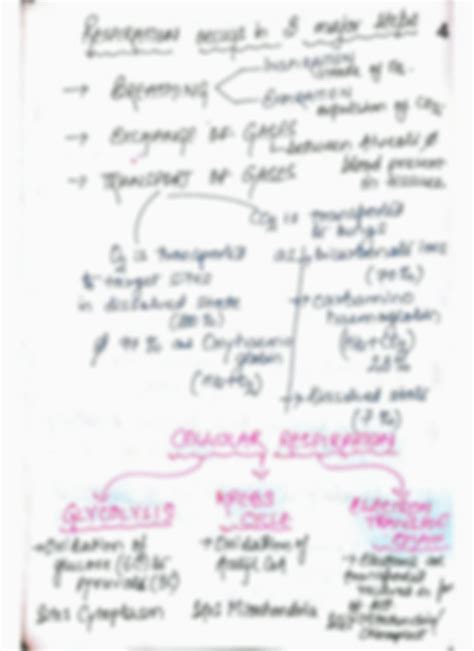 RESPIRATION occurs in 3 major steps
4
→ BREATHING
INSPIRATION
intake of O₂
EXPIRATION
expulsion of CO₂
→ EXCHANGE OF GASES
between Alveoli &
blood present
in tissues
→ TRANSPORT OF GASES
CO₂ is transported
to lungs
O₂ is transported
to target sites
in dissolved state
& 97% as Oxyhaemo
globin
(Hb+O₂)
as bicarbonate ions
(70%)
→ carbamino
haemoglobin
(Hb+CO₂)
23%
→ Dissolved state
(7%)
CELLULAR RESPIRATION
GLYCOLYSIS
→ Oxidation of
glucose (6C) to
pyruvate (3C)
Site: Cytoplasm
KREBS
CYCLE
→ Oxidation of
Acetyl CoA
Site: Mitochondria
ELECTRON
TRANSPORT
CHAIN
→ Electrons are
transported
of ATP
Site: Mitochondria/
Chloroplast